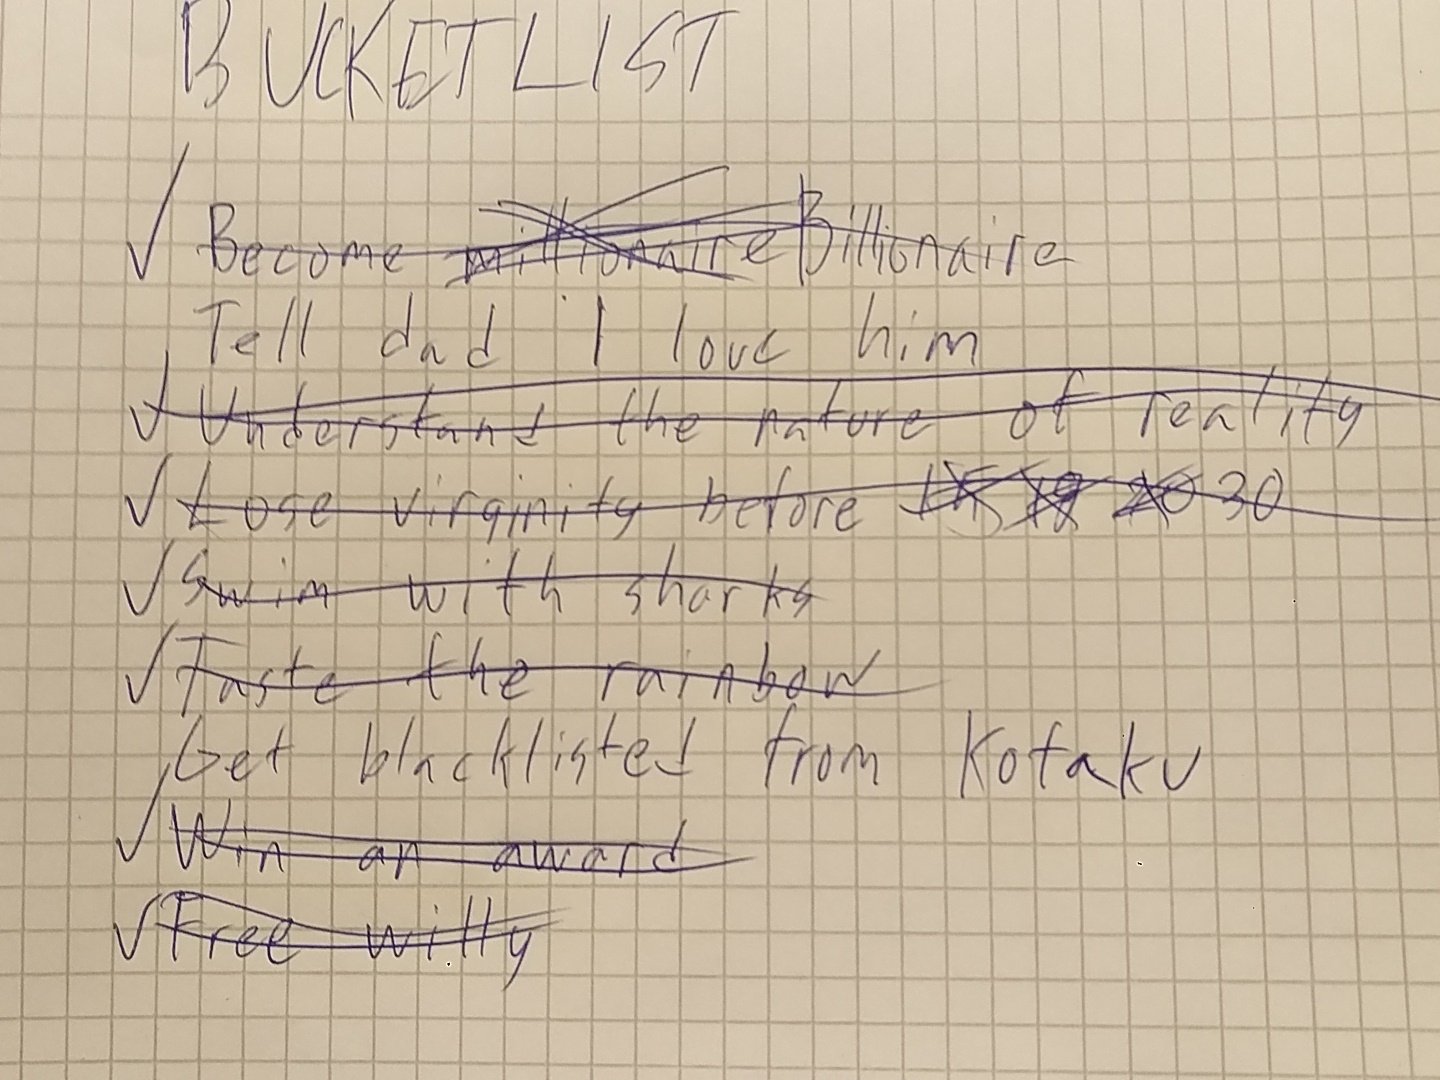 BUCKETLIST
✓ Become millionaire Billionaire
Tell dad I love him
✓ Understand the nature of reality
✓ Lose virginity before 15 18 20 30
✓ Swim with sharks
✓ Taste the rainbow
Get blacklisted from Kotaku
✓ Win an award
✓ Free willy